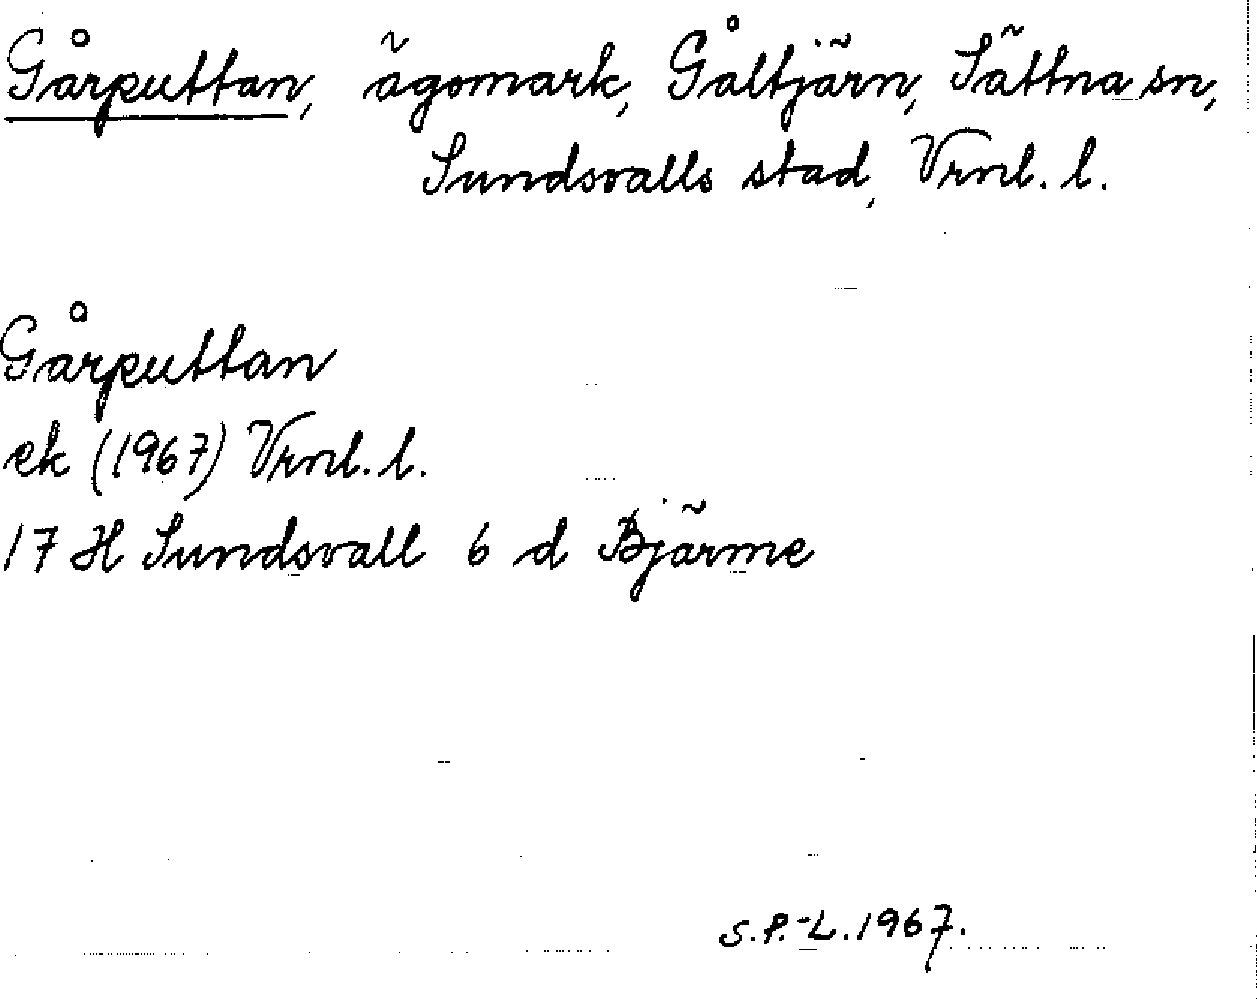 Gårputtan, ägomark, Gåltjärn, Sättna sn,
Sundsvalls stad, Vrnl. l.
Gårputtan
ek (1967) Vrnl. l.
17 H Sundsvall 6 d Bjärme
S.P.-L. 1967.